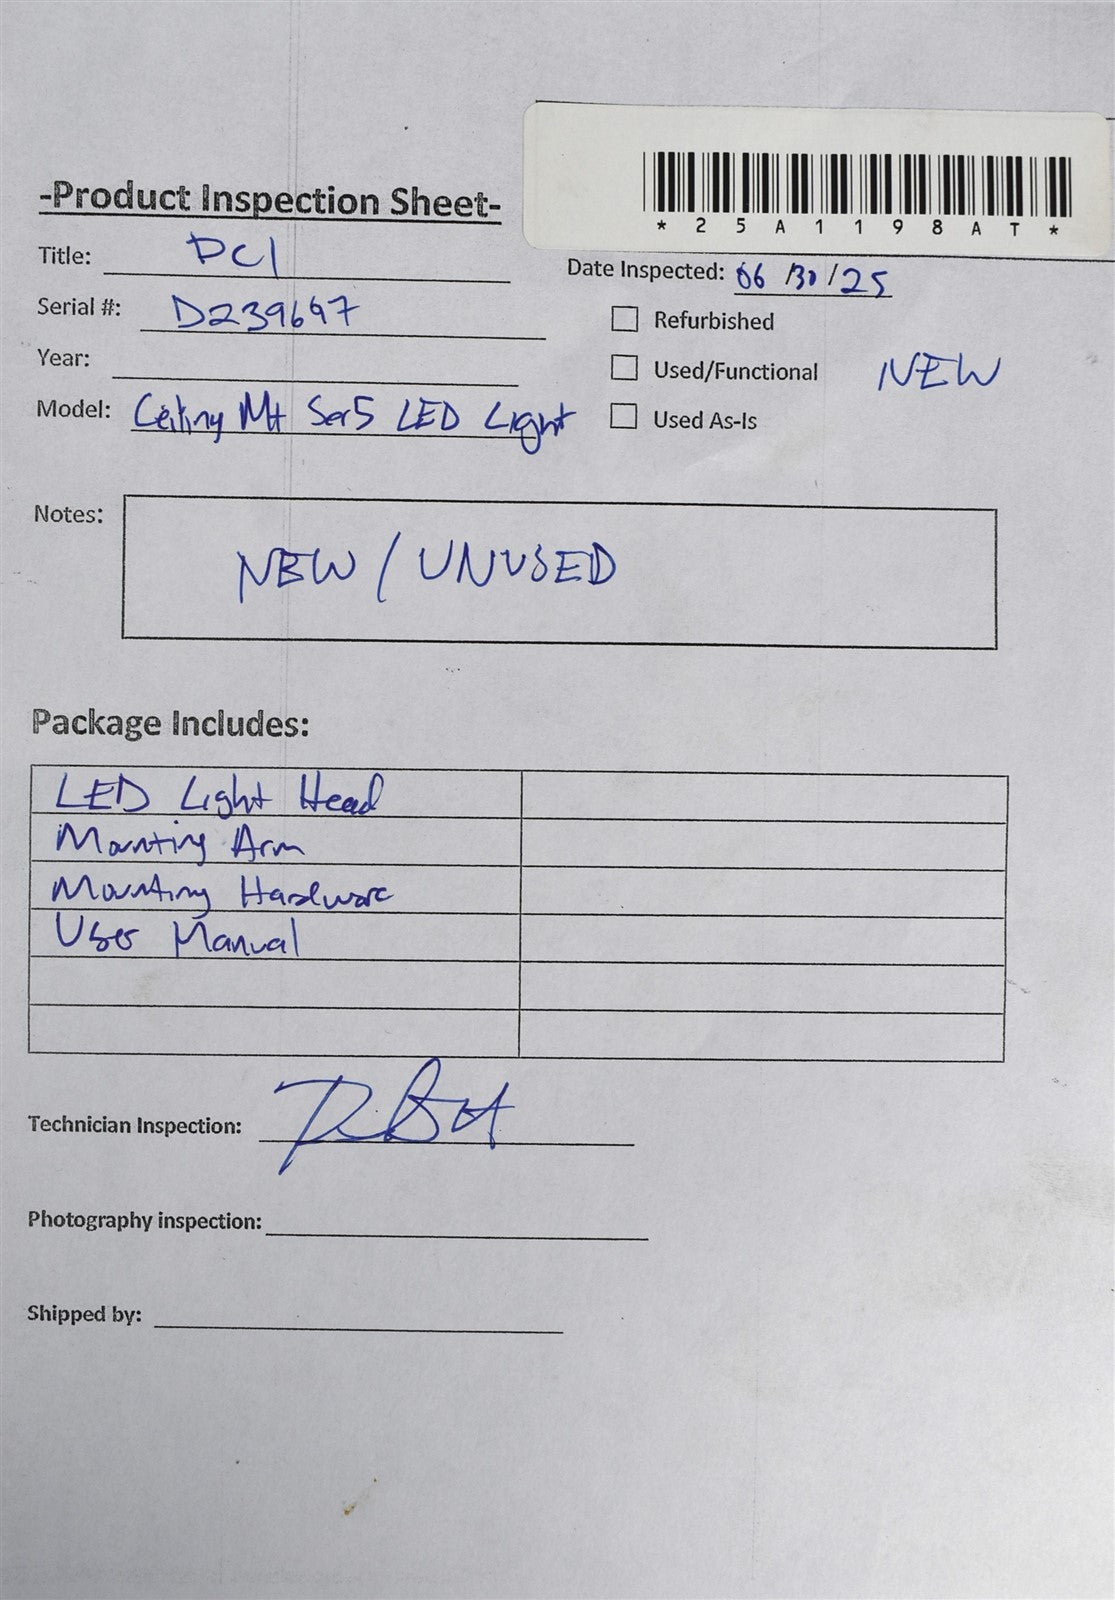 *25A1198AT*
-Product Inspection Sheet-
Title: DCI
Date Inspected: 06/30/25
Serial #: D239697
Refurbished
Year:
Used/Functional NEW
Model: Ceiling Mt Ser5 LED Light
Used As-Is
Notes:
NEW / UNUSED
Package Includes:
LED Light Head
Mounting Arm
Mounting Hardware
User Manual
Technician Inspection:
Photography inspection:
Shipped by: